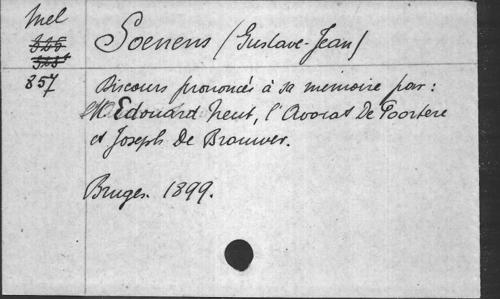 Mel
857
Soenens (Gustave-Jean)
Discours prononcés à sa mémoire par:
Mr Edouard Neut, l'Avocat De Poortere
et Joseph De Brauwer.
Bruges. 1899.